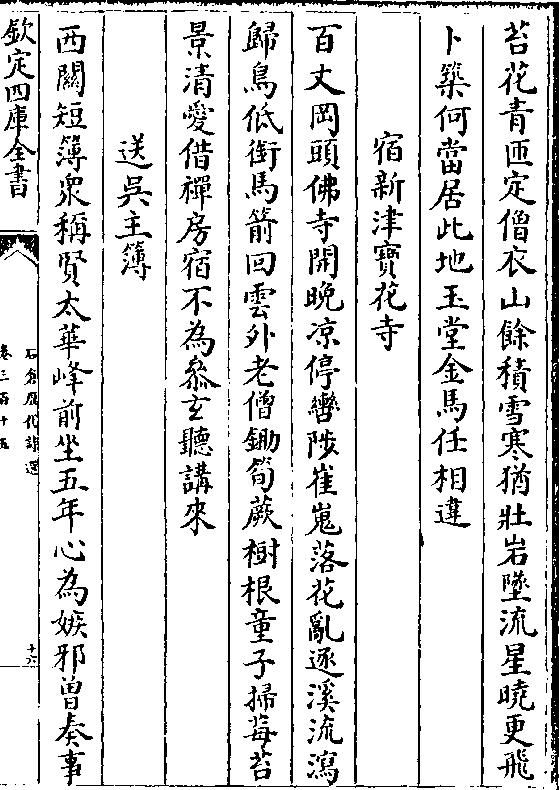 苔花青匝定僧衣山餘積雪寒猶壯岩墜流星曉更飛
卜築何當居此地玉堂金馬任相違
宿新津寶花寺
百丈岡頭佛寺開晚凉停轡陟崔嵬落花亂逐溪流瀉
歸鳥低銜馬箭回雲外老僧鋤筍蕨樹根童子掃莓苔
景清愛借禪房宿不為叅玄聽講來
送吳主簿
西關短簿衆稱賢太華峰前坐五年心為嫉邪曾奏事
欽定四庫全書
石倉歷代詩選
卷三百十五
十六